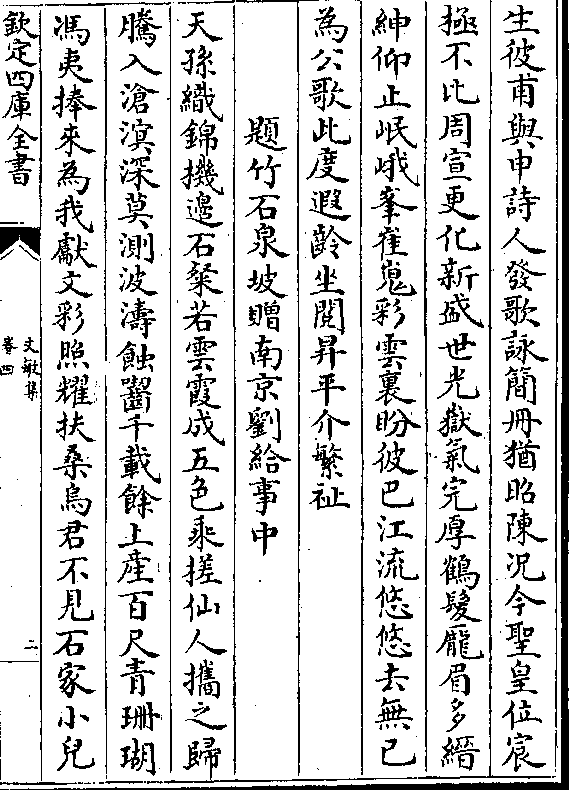 生彼甫與申詩人發歌詠簡冊猶昭陳况今聖皇位宸
極不比周宣更化新盛世光嶽氣完厚鶴髮龎眉多縉
紳仰止岷峨峯崔嵬彩雲裏盼彼巴江流悠悠去無已
為公歌此度遐齡坐閲昇平介繁祉
題竹石泉坡贈南京劉給事中
天孫織錦機邊石粲若雲霞成五色乘搓仙人攜之歸
騰入滄溟深莫測波濤蝕齧千載餘上産百尺青珊瑚
馮夷捧來為我獻文彩照耀扶桑烏君不見石家小兒
欽定四庫全書
文敏集
卷四
二